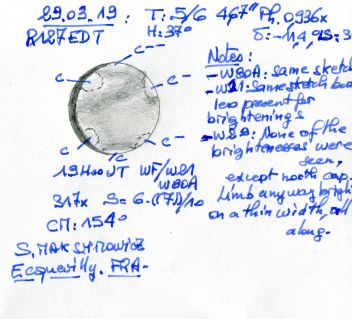 29.03.19 : T: 5/6 4.67" Ph. 0,936x
R127EDT H: 37° δ: -14°
C--
C-
C-
C
C-
Notes:
-W80A: same sketch
-W21: Same sketch but
less present for
brightenings
-W22: None of the
brightnesses were
seen,
except north cap.
Limb anyway bright
on a thin width, all
along.
19H00UT WF/W21
W80A
317x S= 6-(7)/10
CM: 154°
S. MAKSYMOWICZ
Ecquevilly. FRA-